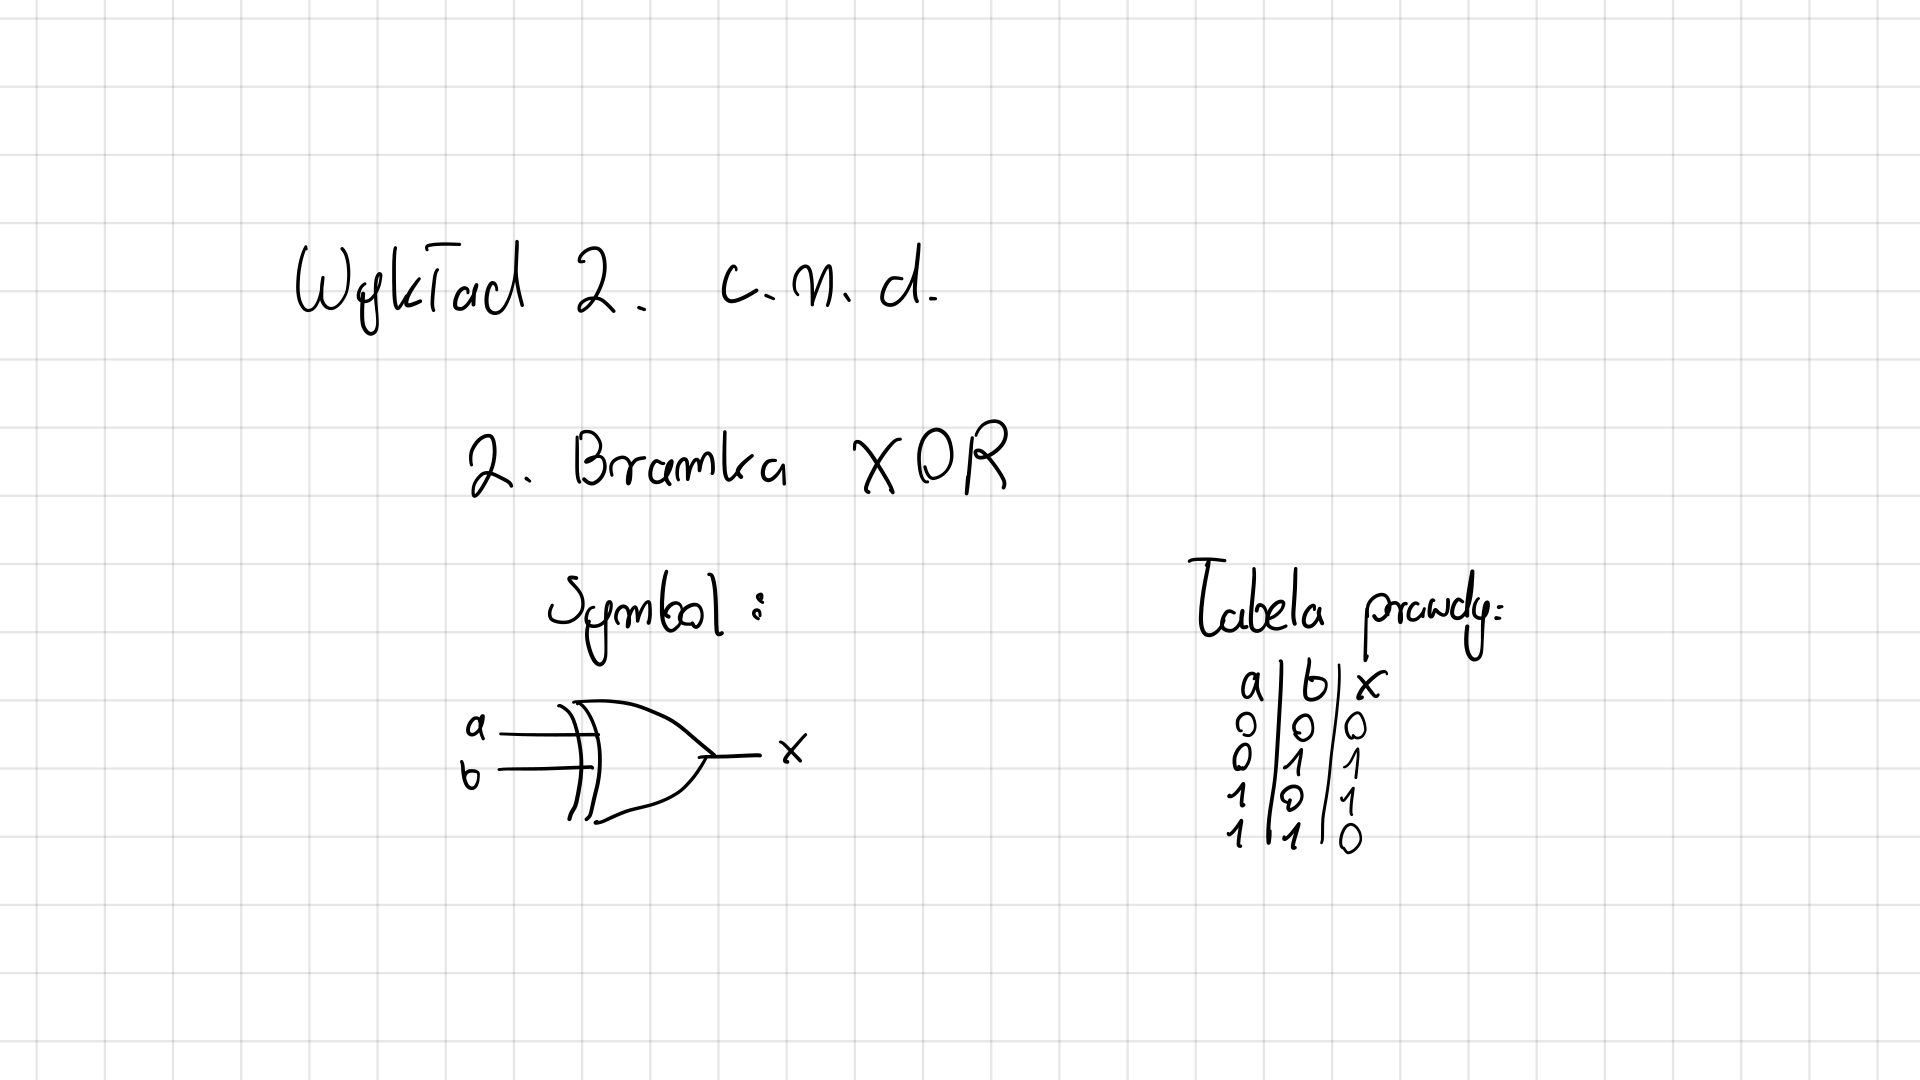 Wykład 2. c.n.d.
2. Bramka XOR
Symbol:
a
b
x
Tabela prawdy:
a | b | x
0 | 0 | 0
0 | 1 | 1
1 | 0 | 1
1 | 1 | 0